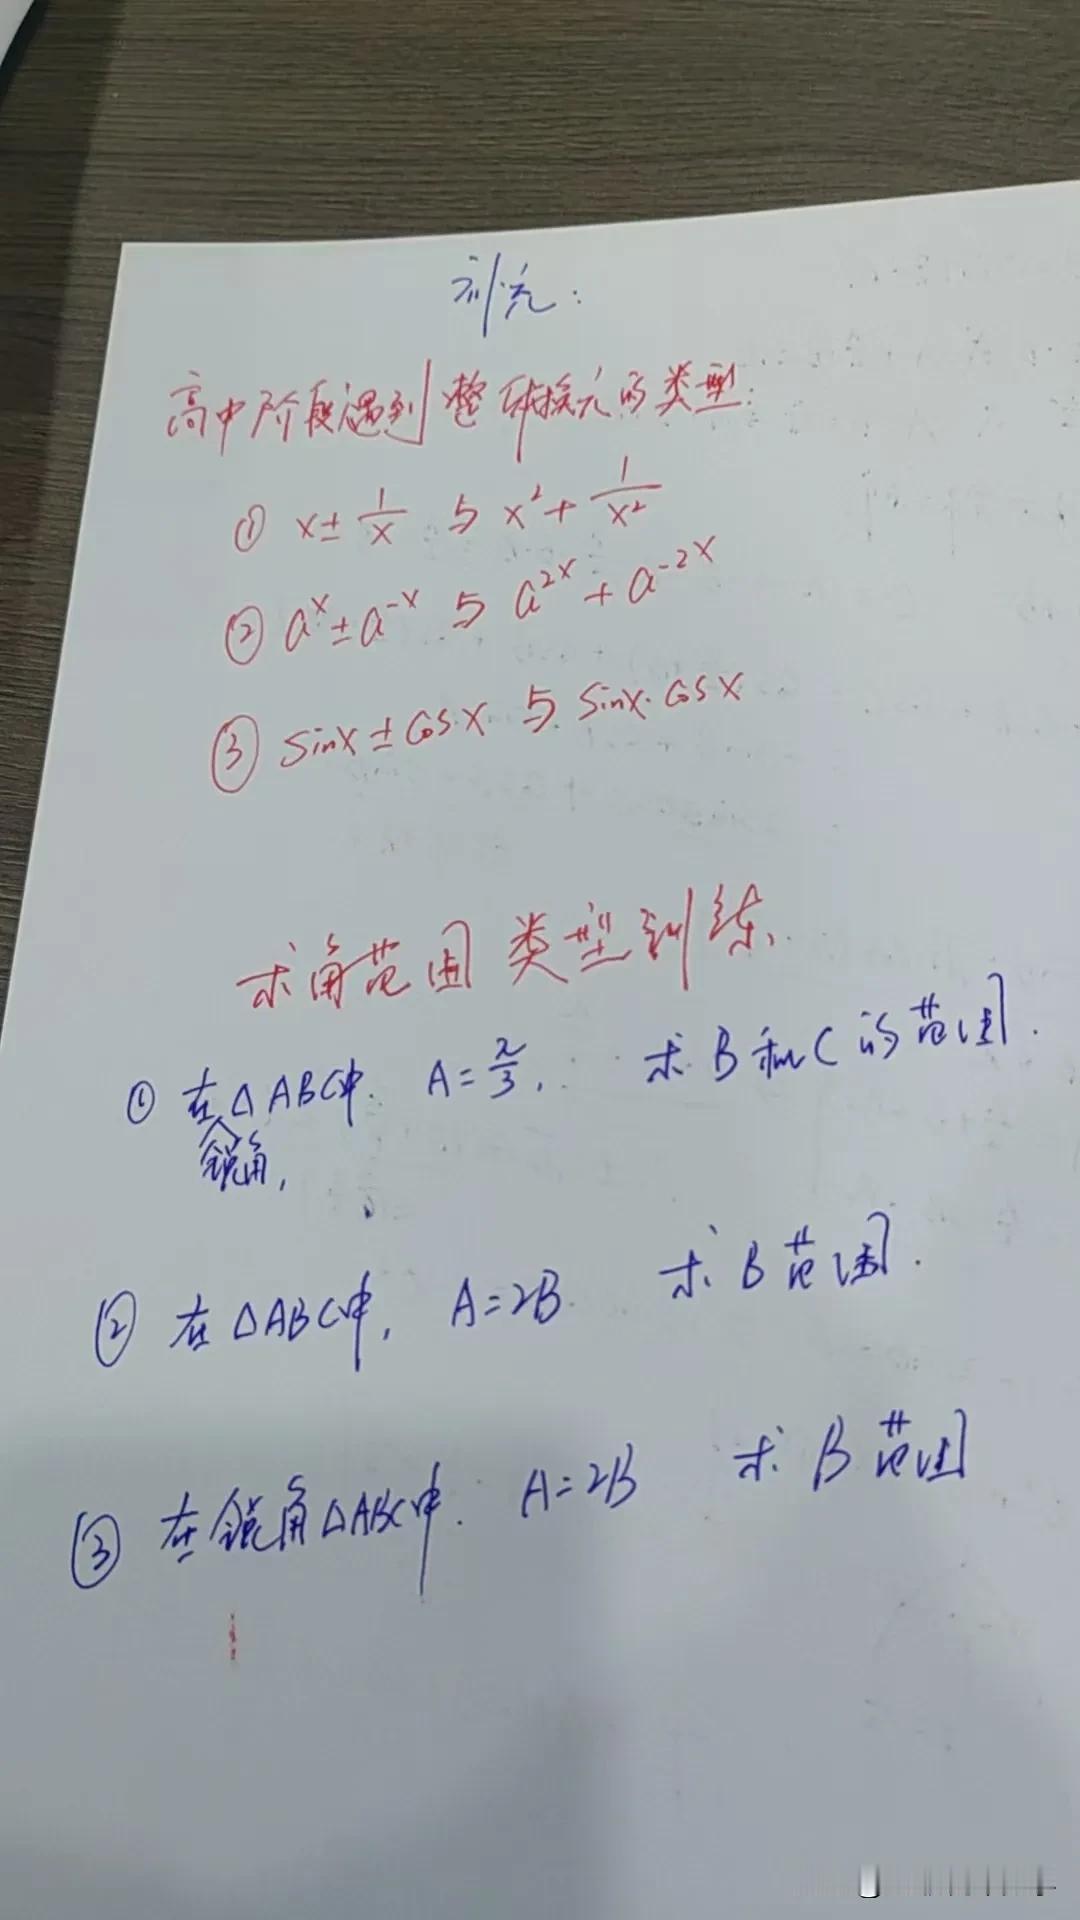 补充：
高中阶段遇到整体换元的类型：
① x ± 1/x 与 x² + 1/x²
② aˣ ± a⁻ˣ 与 a²ˣ + a⁻²ˣ
③ sinx ± cosx 与 sinx·cosx
求角范围类型训练、
① 在△ABC中. A = π/3, 求B和C的范围.
锐角,
② 在△ABC中, A=2B. 求B范围.
③ 在锐角△ABC中. A=2B 求B范围